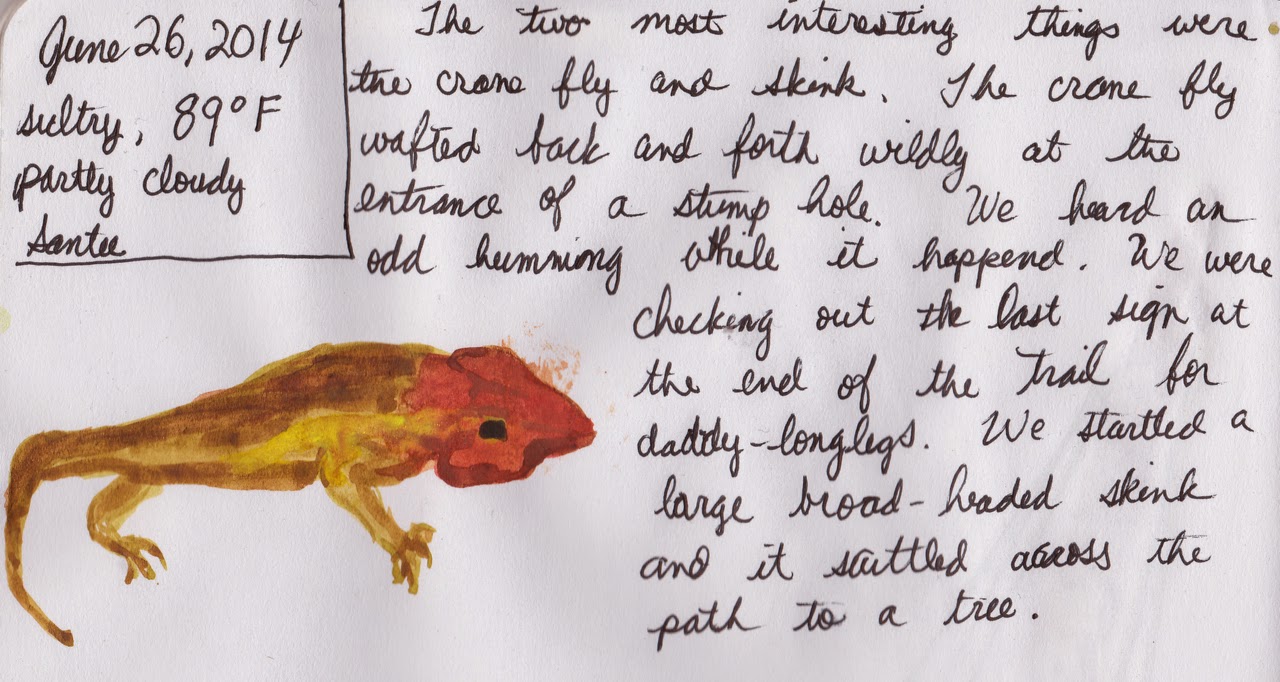 June 26, 2014
sultry, 89°F
partly cloudy
Santee
The two most interesting things were
the crane fly and skink. The crane fly
wafted back and forth wildly at the
entrance of a stump hole. We heard an
odd humming while it happend. We were
checking out the last sign at
the end of the trail for
daddy-longlegs. We startled a
large broad-headed skink
and it scuttled across the
path to a tree.